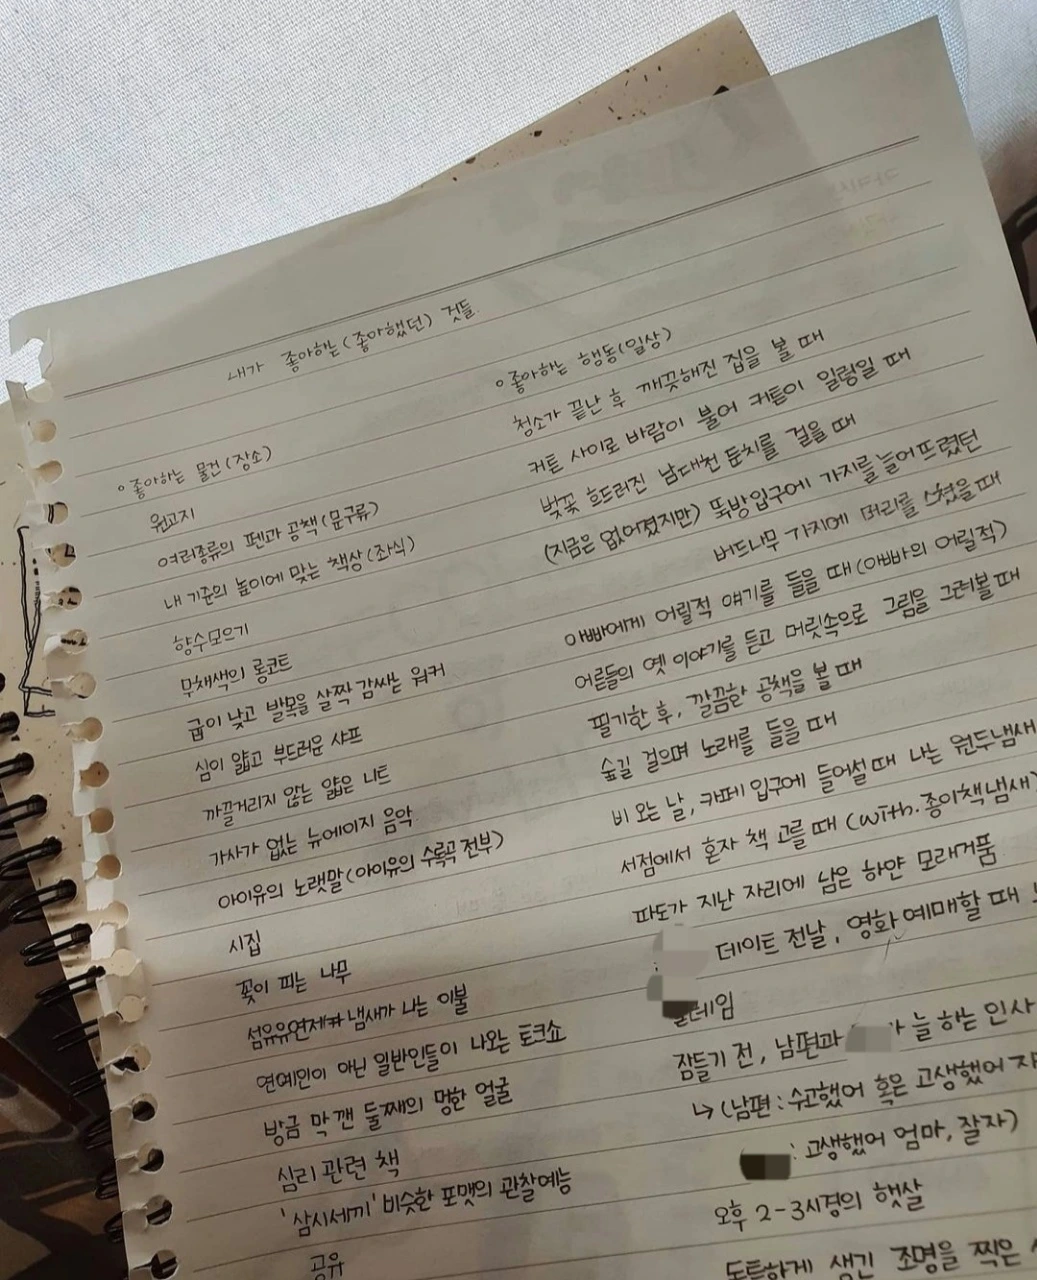 내가 좋아하는(좋아했던) 것들
○좋아하는 물건(장소)
원고지
여러종류의 펜과 공책(문구류)
내 기준의 높이에 맞는 책상(좌식)
향수모으기
무채색의 롱코트
굽이 낮고 발목을 살짝 감싸는 워커
심이 얇고 부드러운 샤프
까끌거리지 않는 얇은 니트
가사가 없는 뉴에이지 음악
아이유의 노랫말(아이유의 수록곡 전부)
시집
꽃이 피는 나무
섬유유연제 냄새가 나는 이불
연예인이 아닌 일반인들이 나오는 토크쇼
방금 막 깬 둘째의 멍한 얼굴
심리 관련 책
'삼시세끼' 비슷한 포맷의 관찰예능
공유
○좋아하는 행동(일상)
청소가 끝난 후 깨끗해진 집을 볼 때
커튼 사이로 바람이 불어 커튼이 일렁일 때
벚꽃 흐드러진 남대천 둔치를 걸을 때
(지금은 없어졌지만) 뚝방입구에 가지를 늘어뜨렸던
버드나무 가지에 머리를 스쳤을 때
아빠에게 어릴적 얘기를 들을 때(아빠의 어릴적)
어른들의 옛 이야기를 듣고 머릿속으로 그림을 그려볼 때
필기한 후, 깔끔한 공책을 볼 때
숲길 걸으며 노래를 들을 때
비 오는 날, 카페 입구에 들어설 때 나는 원두냄새
서점에서 혼자 책 고를 때 (with.종이책냄새)
파도가 지난 자리에 남은 하얀 모래거품
데이트 전날, 영화 예매할 때
잠들기 전, 남편과 늘 하는 인사
↳ (남편 : 수고했어 혹은 고생했어
: 고생했어 엄마, 잘자)
오후 2-3시경의 햇살
도톰하게 생긴 조명을 찍은